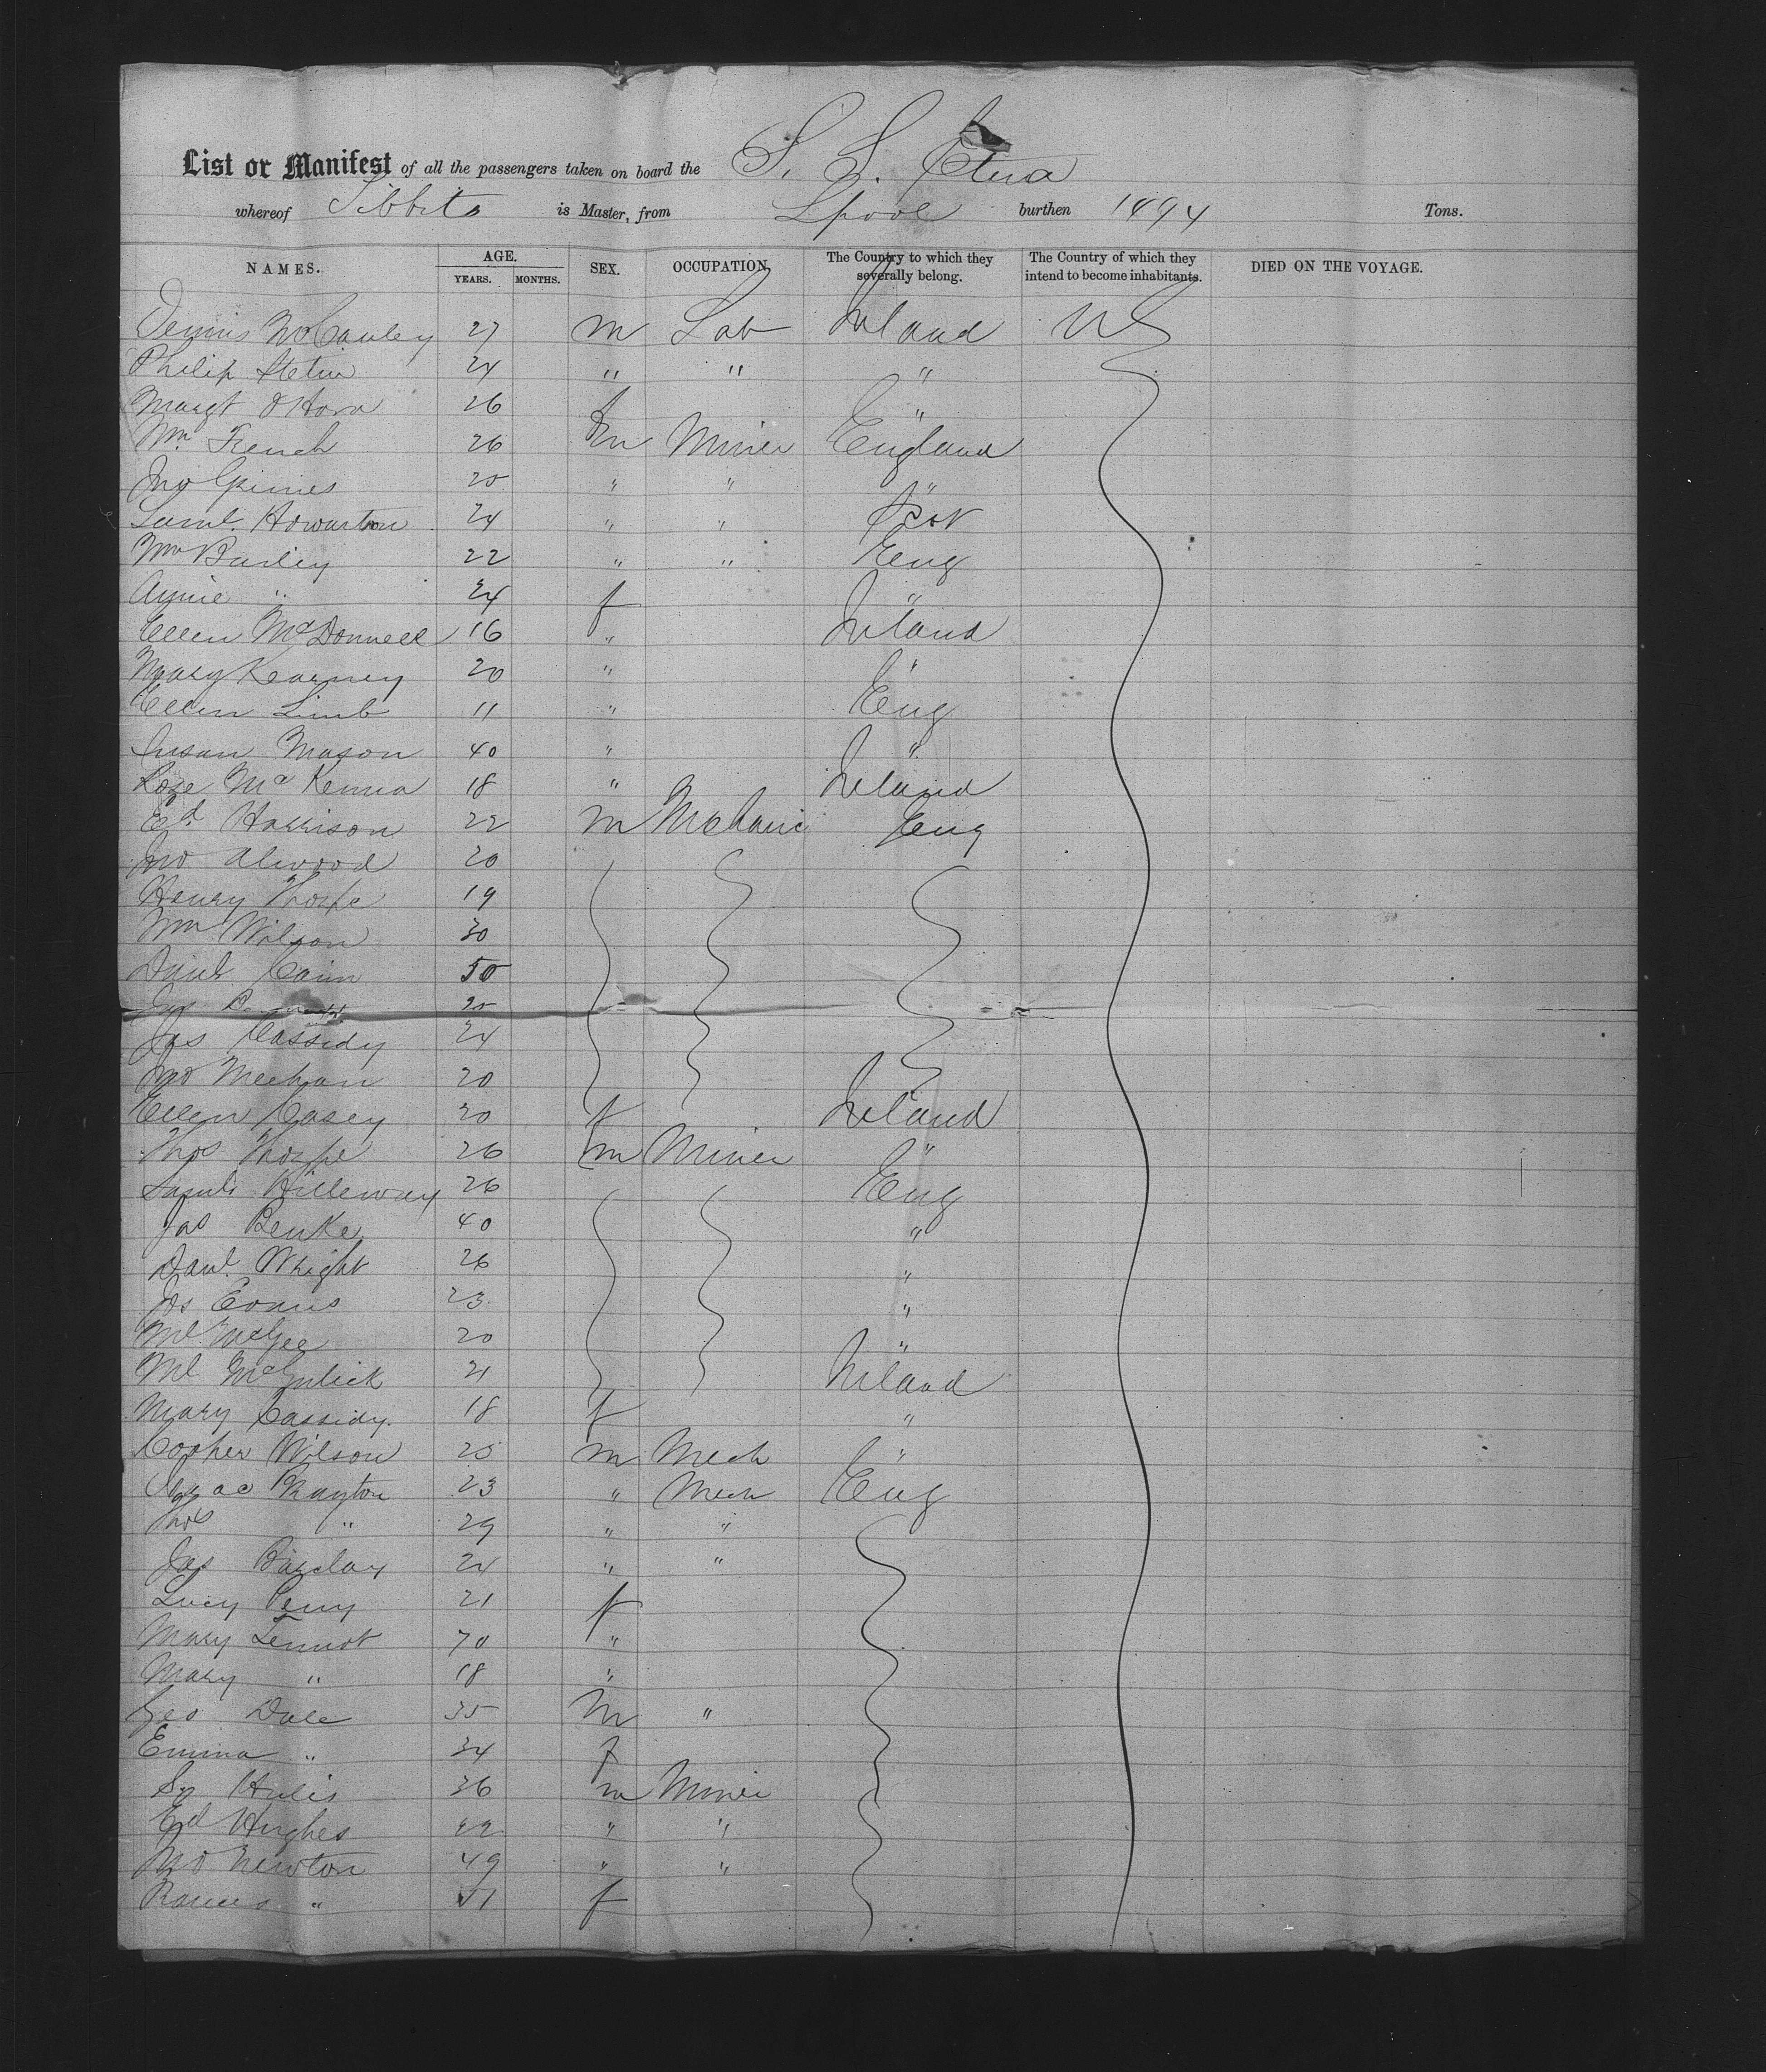 List or Manifest of all the passengers taken on board the S. S. Etna
whereof Tibbits is Master, from Lpool burthen 1494 Tons.
NAMES. AGE. YEARS. MONTHS. SEX. OCCUPATION. The Country to which they severally belong. The Country of which they intend to become inhabitants. DIED ON THE VOYAGE.
Dennis McCauley 27 m Lab Ireland US
Philip 24 " " "
Margt O'Hara 26 f "
Wm French 26 m Miner England
Jno Grimes 25 " " "
Saml. Howarton 24 " " Scot
Wm Bailey 22 " " Eng
Annie " 24 f "
Ellen McDonnell 16 " Ireland
Mary Kearney 20 " "
Ellen Limb 11 " Eng
Susan Mason 40 " "
Rose McKenna 18 " Ireland
Ed. Harrison 22 m Mchanic Eng
Jno Alwood 20
Henry Thorpe 19
Wm Wilson 30
Danl Cain 50
Jas 25
Jas Cassidy 24
Jno Meehan 20
Ellen Casey 20 f Ireland
Thos Thorpe 26 m Miner "
Saml Hilleway 26 Eng
Jas Benke 40 "
Danl. Wright 26 "
Jos Evans 23 "
Ml McGee 20 "
Ml McGulick 21 Ireland
Mary Cassidy. 18 f "
Cooper Wilson 25 m Mech "
Isaac Brayton 23 " Mech Eng
Thos " 29 " "
Jas Barclay 24 " "
Lucy Perry 21 f
Mary Tennot 70 "
Mary " 18 "
Geo Dale 35 m "
Emma " 34 f
Hulis 36 m Miner
Ed Hughes 42 " "
Jno Newton 49 " "
" 51 f